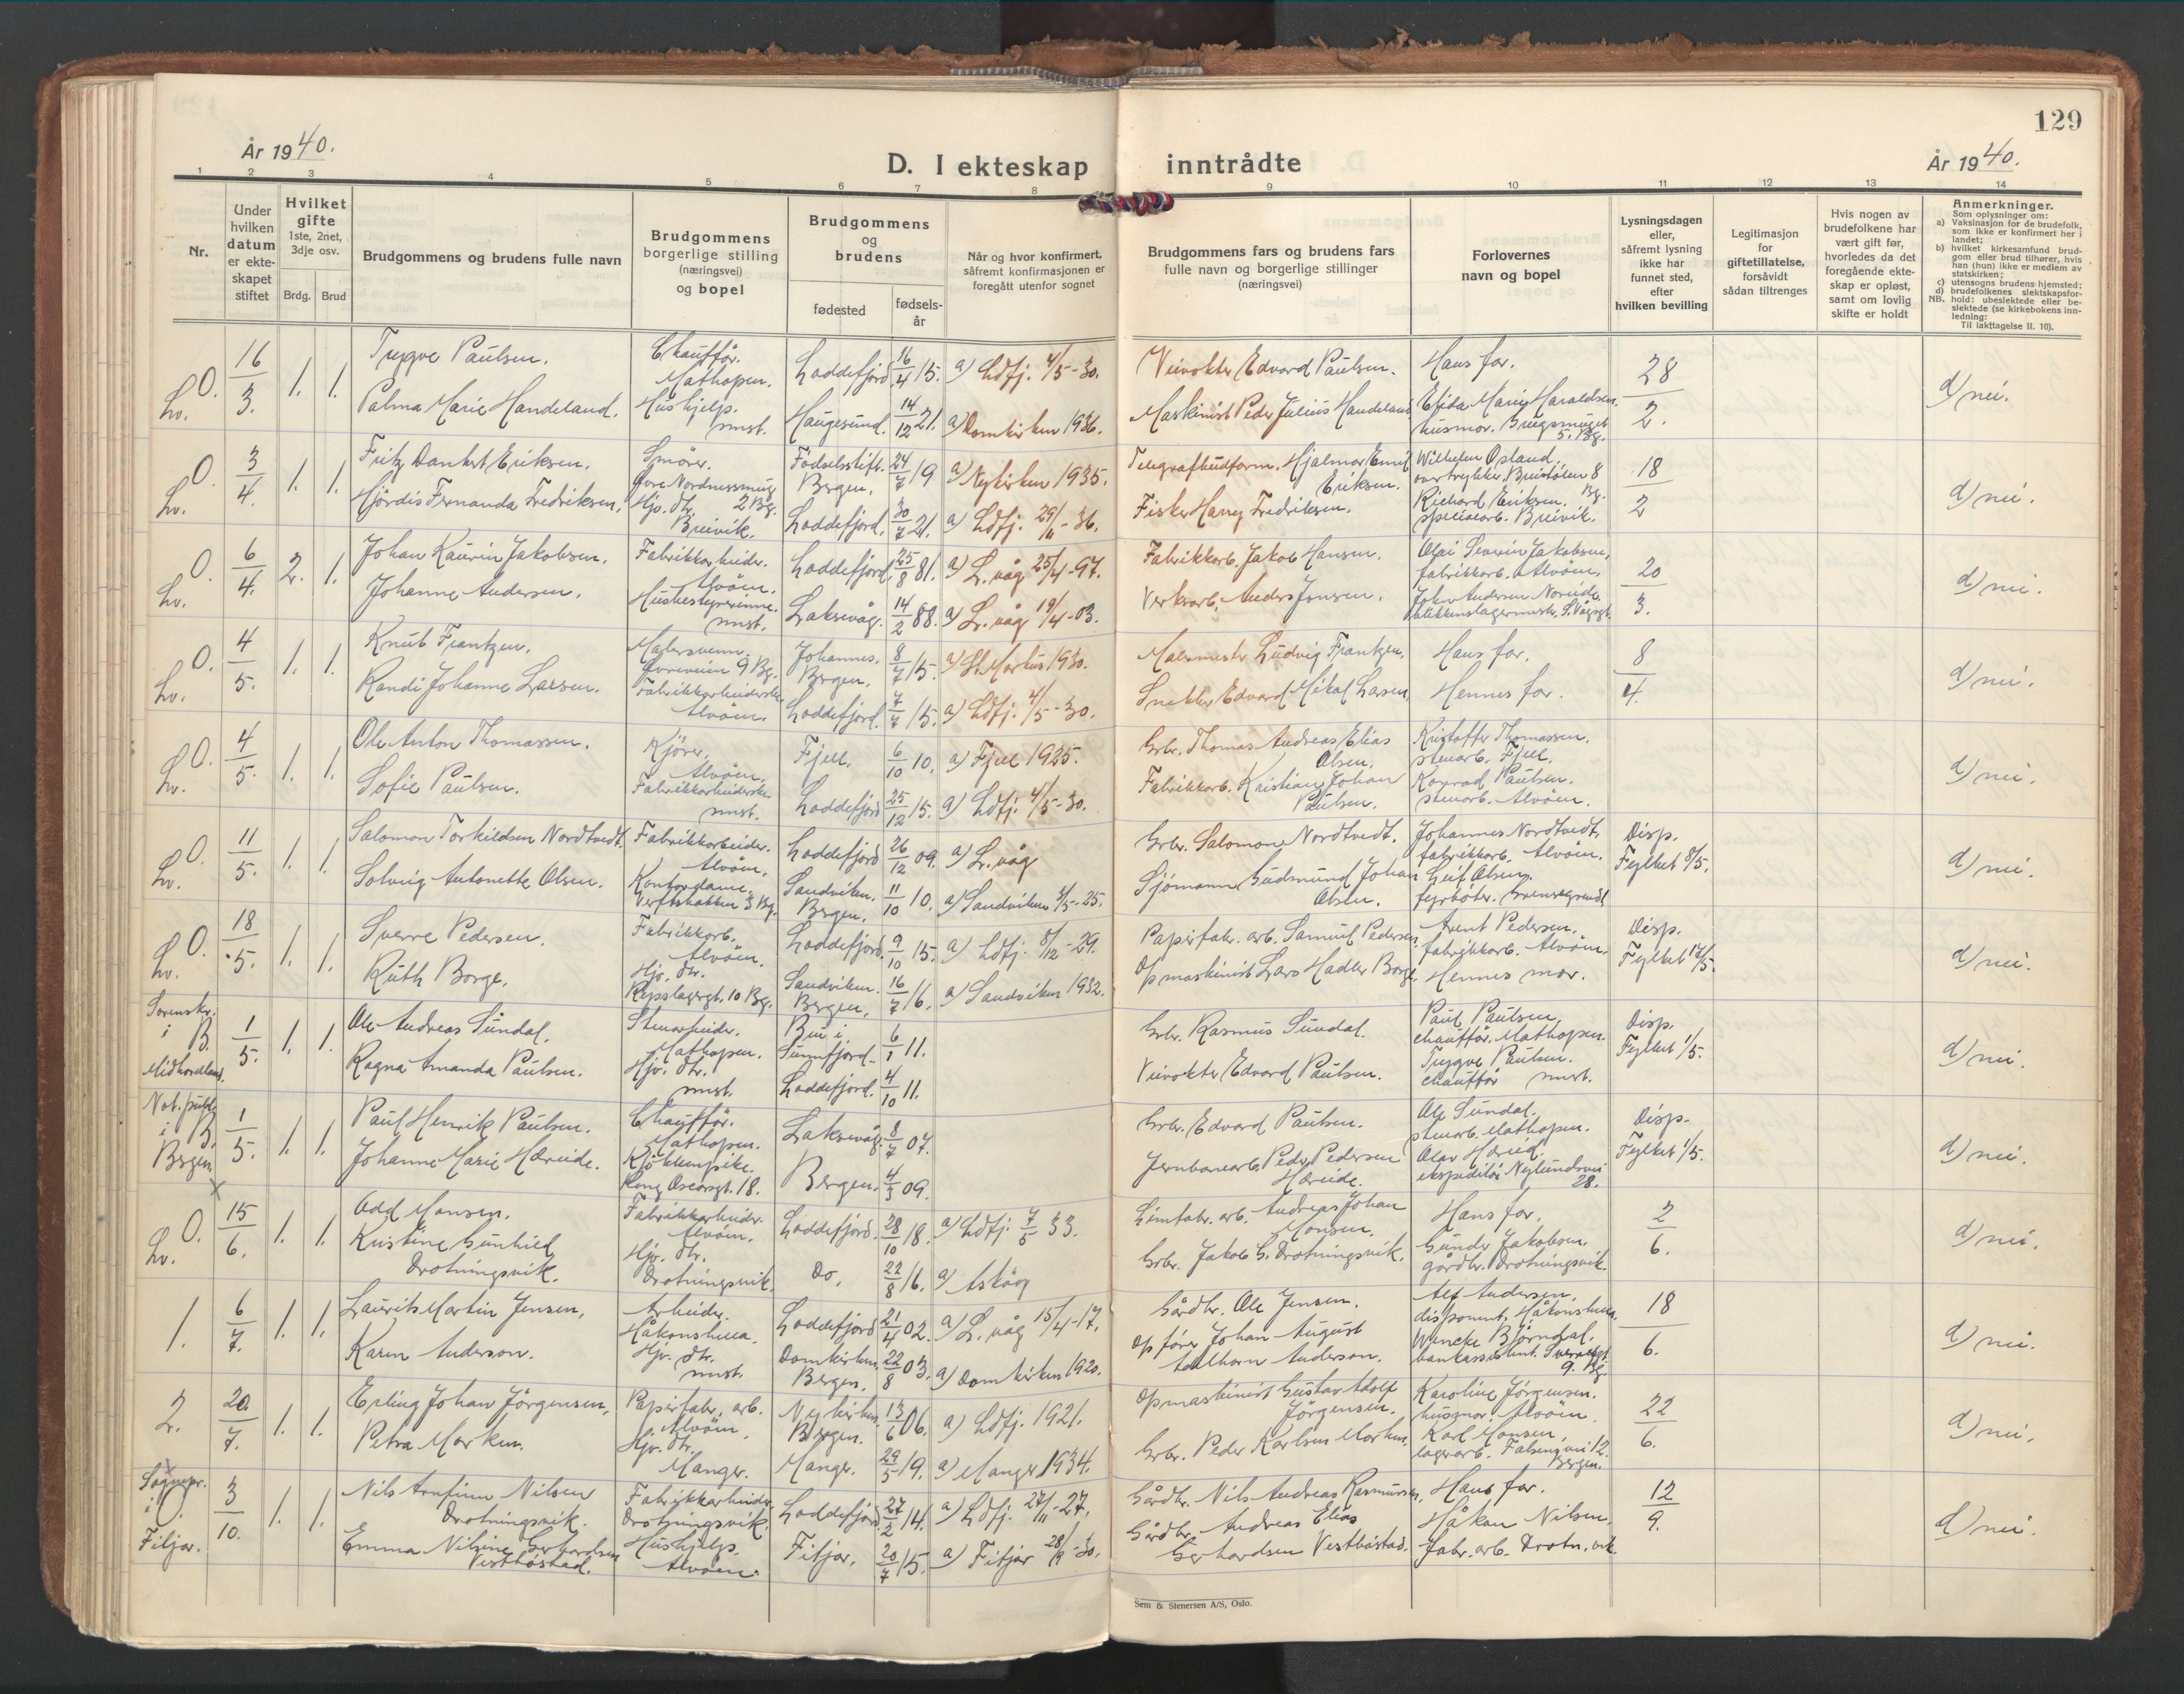 129
År 1940.
D. I ekteskap inntrådte
År 1940.
1 2 3 4 5 6 7 8 9 10 11 12 13 14
Nr.
Under hvilken datum er ekteskapet stiftet
Hvilket gifte 1ste, 2net, 3dje osv.
Brdg. Brud
Brudgommens og brudens fulle navn
Brudgommens borgerlige stilling (næringsvei) og bopel
Brudgommens og brudens
fødested
fødselsår
Når og hvor konfirmert, såfremt konfirmasjonen er foregått utenfor sognet
Brudgommens fars og brudens fars fulle navn og borgerlige stillinger (næringsvei)
Forlovernes navn og bopel
Lysningsdagen eller, såfremt lysning ikke har funnet sted, efter hvilken bevilling
Legitimasjon for giftetillatelse, forsåvidt sådan tiltrenges
Hvis nogen av brudefolkene har vært gift før, hvorledes da det foregående ekteskap er opløst, samt om lovlig skifte er holdt
Anmerkninger.
Som oplysninger om:
a) Vaksinasjon for de brudefolk, som ikke er konfirmert her i landet;
b) hvilket kirkesamfund brudgom eller brud tilhører, hvis han (hun) ikke er medlem av statskirken;
c) utensogns brudens hjemsted;
d) brudefolkenes slektskapsforhold: ubeslektede eller beslektede (se kirkebokens innledning:
NB. Til iakttagelse II. 10).
Lv. O. 16/3. 1. 1. Trygve Paulsen. Chauffør. Mathopen. Loddefjord 16/4 15. a) Ldfj. 4/5-30. Veivokter Edvard Paulsen. Hans far. 28/2. d) nei.
Palma Marie Handeland. Hushjelp. smst. Haugesund. 14/12 21. a) Domkirken 1936. Maskinist Peder Julius Handeland Elida Marie Haraldsen. husmor. 5. Bg.
Lv. O. 3/4. 1. 1. Fritz Dankert Eriksen. Smører. Øvre Nordnessmug 2 Bg. Fødselsstift. Bergen. 24/7 19 a) Nykirken 1935. Telegrafbudform. Hjalmar Emil Eriksen. Wilhelm Opland, overtrykker, Breistølen 8 Bg. 18/2 d) nei.
Hjördis Fernanda Fredriksen. Hjv. dtr. Breivik. Loddefjord. 30/7 21. a) Ldfj. 29/11-36. Fisker Harry Fredriksen. Richard Eriksen. spesialarb. Breivik.
Lv. O. 6/4. 2. 1. Johan Kaurin Jakobsen. Fabrikkarbeider. Alvöen. Loddefjord 25/8 81. a) L.våg 25/4-97. Fabrikkarb. Jakob Hansen. Olai Severin Jakobsen, fabrikkarb. Alvöen. 20/3. d) nei.
Johanne Andersen. Husbestyrerinne. smst. Laksevåg. 14/2 88. a) L.våg 19/4-03. Verksarb. Anders Jensen. John Andersen Noreide.
Lv. O. 4/5. 1. 1. Knut Frantzen. Malersvenn. Øvreveien 9 Bg. Johannes. Bergen. 8/7 15. a) St. Markus 1930. Malermester Ludvig Frantzen. Hans far. 8/4. d) nei.
Randi Johanne Larsen. Fabrikkarbeiderske Alvöen. Loddefjord. 7/7 15. a) Ldfj. 4/5-30. Snekker Edvard Mikal Larsen. Hennes far.
Lv. O. 4/5. 1. 1. Ole Anton Thomassen. Kjörer. Alvöen. Fjell. 6/10 10. a) Fjell 1925. Grbr. Thomas Andreas Elias Olsen. Kristoffer Thomassen. stenarb. Fjell. d) nei.
Sofie Paulsen. Fabrikkarbeiderske. smst. Loddefjord 25/12 15. a) Ldfj. 4/5-30. Fabrikkarb. Kristian Johan Paulsen. Konrad Paulsen. stenarb. Alvöen.
Lv. O. 11/5. 1. 1. Salomon Torkildsen Nordtvedt. Fabrikkarbeider. Alvöen. Loddefjord 26/12 09. a) L.våg Grbr. Salomon Nordtvedt. Johannes Nordtvedt, fabrikkarb. Alvöen. Disp. Fylket 8/5. d) nei.
Solveig Antonette Olsen. Kontordame. Verftsbakken 3 Bg. Sandviken. Bergen. 11/10 10. a) Sandviken 3/5-25. Sjömann Gudmund Johan Olsen. Leif Olsen, fyrböter.
Lv. O. 18/5. 1. 1. Sverre Pedersen. Fabrikkarb. Alvöen. Loddefjord. 9/10 15. a) Ldfj. 8/12-29. Papirfabr. arb. Samuel Pedersen. Arent Pedersen. fabrikkarb. Alvöen. Disp. Fylket 14/5. d) nei.
Ruth Borge. Hjv. dtr. Repslagergt. 10 Bg. Sandviken. Bergen. 16/7 16. a) Sandviken 1932. Opmaskinist Lars Hadler Borge. Hennes mor.
Sorenskr. i B. Midhordland. 1/5. 1. 1. Ole Andreas Sundal. Stenarbeider. Mathopen. Bru i Sunnfjord. 6/1 11. Grbr. Rasmus Sundal. Paul Paulsen, chauffør. Mathopen. Disp. Fylket 1/5. d) nei.
Ragna Amanda Paulsen. Hjv. dtr. smst. Loddefjord. 4/10 11. Veivokter Edvard Paulsen. Trygve Paulsen. chauffør smst.
Not. publ. i B. Bergen. 1/5. 1. 1. Paul Henrik Paulsen. Chauffør. Mathopen. Laksevåg. 8/7 07. Grbr. Edvard Paulsen. Ole Sundal. stenarb. Mathopen. Disp. Fylket 1/5. d) nei.
Johanne Marie Hæreide. Kjökkenpike. Kong Oscarsgt. 18. Bergen. 4/3 09. Jernbanearb. Peder Pedersen Hæreide. Olav Hæreid. ekspeditør Nylundsvei 28.
x
Lv. O. 15/6. 1. 1. Odd Monsen. Fabrikkarbeider. Alvöen. Loddefjord. 28/10 18. a) Ldfj. 7/5 33. Limfabr. arb. Andreas Johan Monsen. Hans far. 2/6. d) nei.
Kristine Gunhild Drotningsvik. Hjv. dtr. Drotningsvik. Do. 22/8 16. a) Asköy Grbr. Jakob G. Drotningsvik. Gunder Jakobsen. gårdbr. Drotningsvik.
1. 6/7. 1. 1. Laurits Martin Jensen. Arbeider. Håkonshella. Loddefjord 21/4 02. a) L.våg 15/4-17. Gårdbr. Ole Jensen. Alf Andersen, disponent. Håkonshella. 18/6. d) nei.
Karen Anderson. Hjv. dtr. smst. Domkirken Bergen. 22/8 03. a) Domkirken 1920. Opfører Johan August Adelhorn Anderson. Wencke Bjørndal. bankassistent. Sverresgt. 9. Bg.
2. 20/7. 1. 1. Erling Johan Jörgensen. Papirfabr. arb. Alvöen. Nykirken. Bergen. 13/6 06. a) Ldfj. 1921. Opmaskinist Gustav Adolf Jörgensen. Karoline Jörgensen. husmor. Alvöen. 22/6. d) nei.
Petra Morken. Hjv. dtr. Manger. Manger. 29/5 19. a) Manger 1934. Grbr. Peder Karlsen Morken. Karl Monsen, lagerarb. 12. Bergen.
Sognepr. i O. Fitjar. 3/10. 1. 1. Nils Arnfinn Nilsen Drotningsvik. Fabrikkarbeider Drotningsvik. Loddefjord 27/2 14. a) Ldfj. 27/11-27. Gårdbr. Nils Andreas Rasmussen. Hans far. 12/9. d) nei.
Emma Nilsine Gerhardsen Vestbøstad. Hushjelp. Alvöen. Fitjar. 20/7 15. a) Fitjar 28/9-30. Gårdbr. Andreas Elias Gerhardsen Vestbøstad. Håkon Nilsen. fabr. arb. Drotn.vik.
Sem & Stenersen A/S, Oslo.